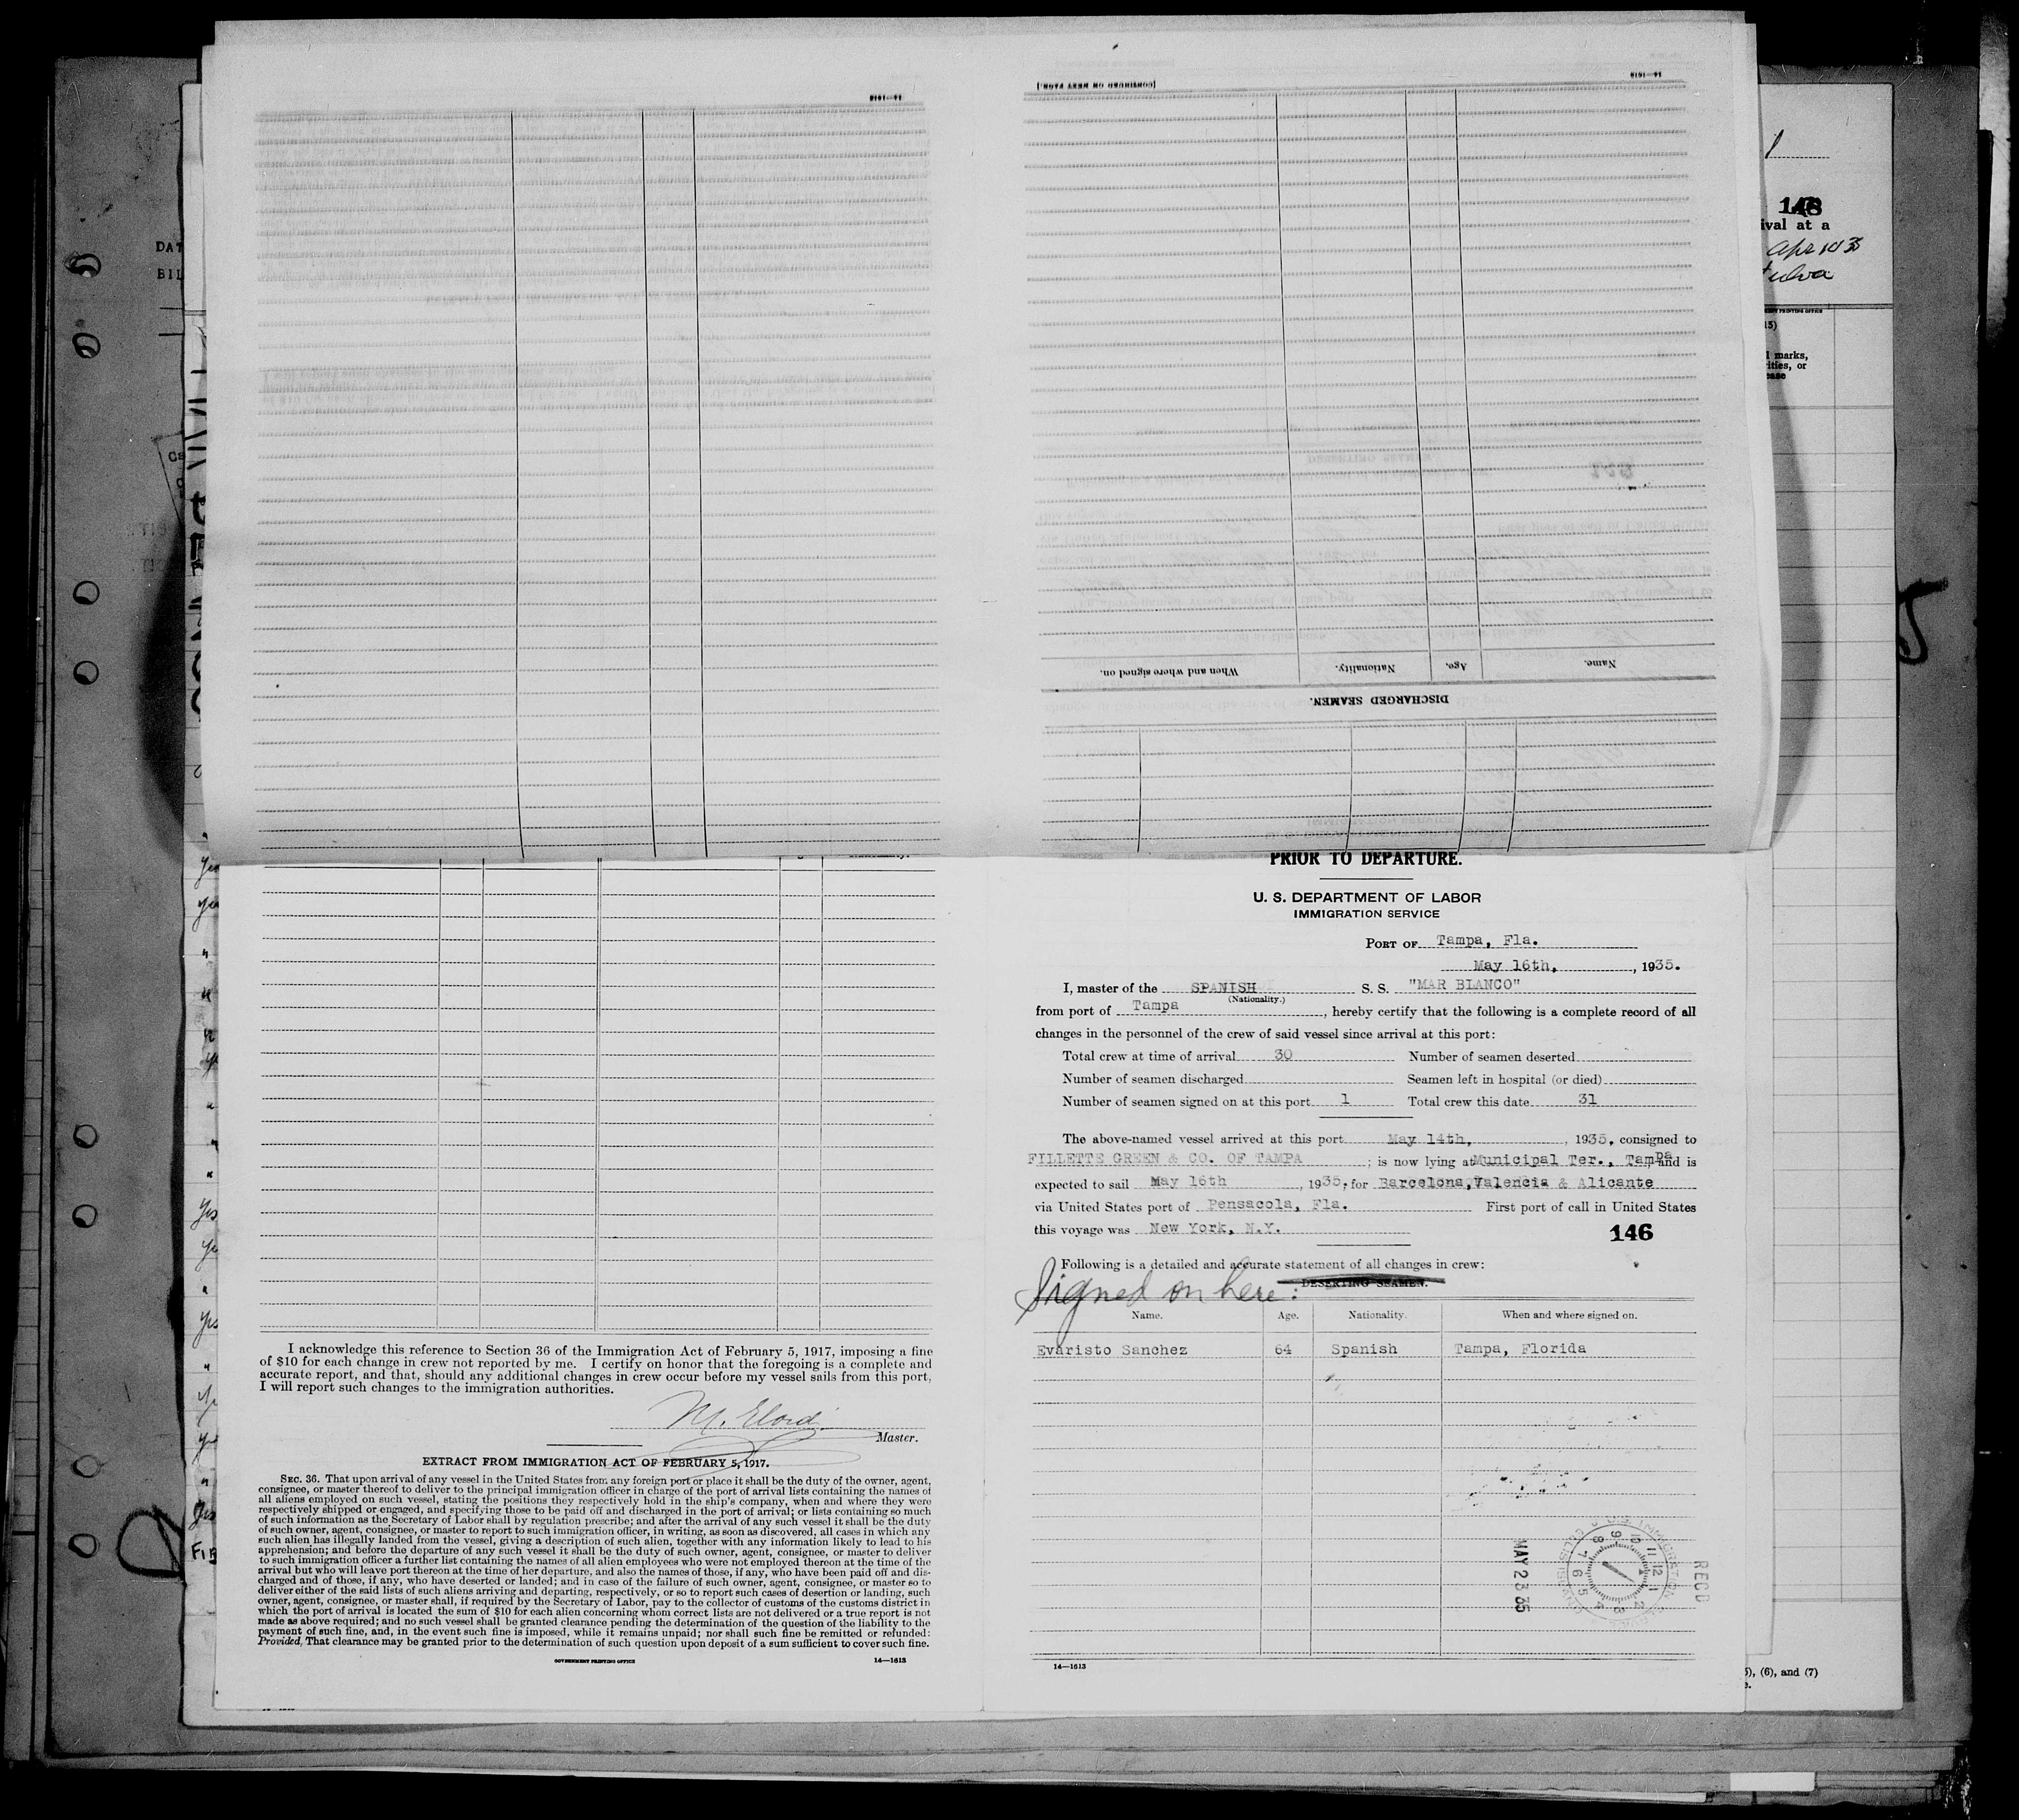 14—1613
[CONTINUED ON NEXT PAGE.]
14—1613
When and where signed on.
Nationality.
Age.
Name.
DISCHARGED SEAMEN.
148
ival at a
l marks,
ities, or
DAT
BIL
PRIOR TO DEPARTURE.
U. S. DEPARTMENT OF LABOR
IMMIGRATION SERVICE
PORT OF Tampa, Fla.
May 16th, , 1935.
I, master of the SPANISH S. S. "MAR BLANCO"
(Nationality.)
from port of Tampa , hereby certify that the following is a complete record of all
changes in the personnel of the crew of said vessel since arrival at this port:
Total crew at time of arrival 30 Number of seamen deserted
Number of seamen discharged Seamen left in hospital (or died)
Number of seamen signed on at this port 1 Total crew this date 31
The above-named vessel arrived at this port May 14th, , 1935, consigned to
FILLETTE GREEN & CO. OF TAMPA ; is now lying at Municipal Ter., Tampa and is
expected to sail May 16th , 1935, for Barcelona, Valencia & Alicante
via United States port of Pensacola, Fla. First port of call in United States
this voyage was New York, N.Y.
146
Following is a detailed and accurate statement of all changes in crew:
Signed on here: DESERTING SEAMEN.
Name. Age. Nationality. When and where signed on.
Evaristo Sanchez 64 Spanish Tampa, Florida
MAY 23 35
RECD
14—1613
I acknowledge this reference to Section 36 of the Immigration Act of February 5, 1917, imposing a fine
of $10 for each change in crew not reported by me. I certify on honor that the foregoing is a complete and
accurate report, and that, should any additional changes in crew occur before my vessel sails from this port,
I will report such changes to the immigration authorities.
Master.
EXTRACT FROM IMMIGRATION ACT OF FEBRUARY 5, 1917.
SEC. 36. That upon arrival of any vessel in the United States from any foreign port or place it shall be the duty of the owner, agent,
consignee, or master thereof to deliver to the principal immigration officer in charge of the port of arrival lists containing the names of
all aliens employed on such vessel, stating the positions they respectively hold in the ship's company, when and where they were
respectively shipped or engaged, and specifying those to be paid off and discharged in the port of arrival; or lists containing so much
of such information as the Secretary of Labor shall by regulation prescribe; and after the arrival of any such vessel it shall be the duty
of such owner, agent, consignee, or master to report to such immigration officer, in writing, as soon as discovered, all cases in which any
such alien has illegally landed from the vessel, giving a description of such alien, together with any information likely to lead to his
apprehension; and before the departure of any such vessel it shall be the duty of such owner, agent, consignee, or master to deliver
to such immigration officer a further list containing the names of all alien employees who were not employed thereon at the time of the
arrival but who will leave port thereon at the time of her departure, and also the names of those, if any, who have been paid off and dis-
charged and of those, if any, who have deserted or landed; and in case of the failure of such owner, agent, consignee, or master so to
deliver either of the said lists of such aliens arriving and departing, respectively, or so to report such cases of desertion or landing, such
owner, agent, consignee, or master shall, if required by the Secretary of Labor, pay to the collector of customs of the customs district in
which the port of arrival is located the sum of $10 for each alien concerning whom correct lists are not delivered or a true report is not
made as above required; and no such vessel shall be granted clearance pending the determination of the question of the liability to the
payment of such fine, and, in the event such fine is imposed, while it remains unpaid; nor shall such fine be remitted or refunded:
Provided, That clearance may be granted prior to the determination of such question upon deposit of a sum sufficient to cover such fine.
GOVERNMENT PRINTING OFFICE 14—1613
), (6), and (7)